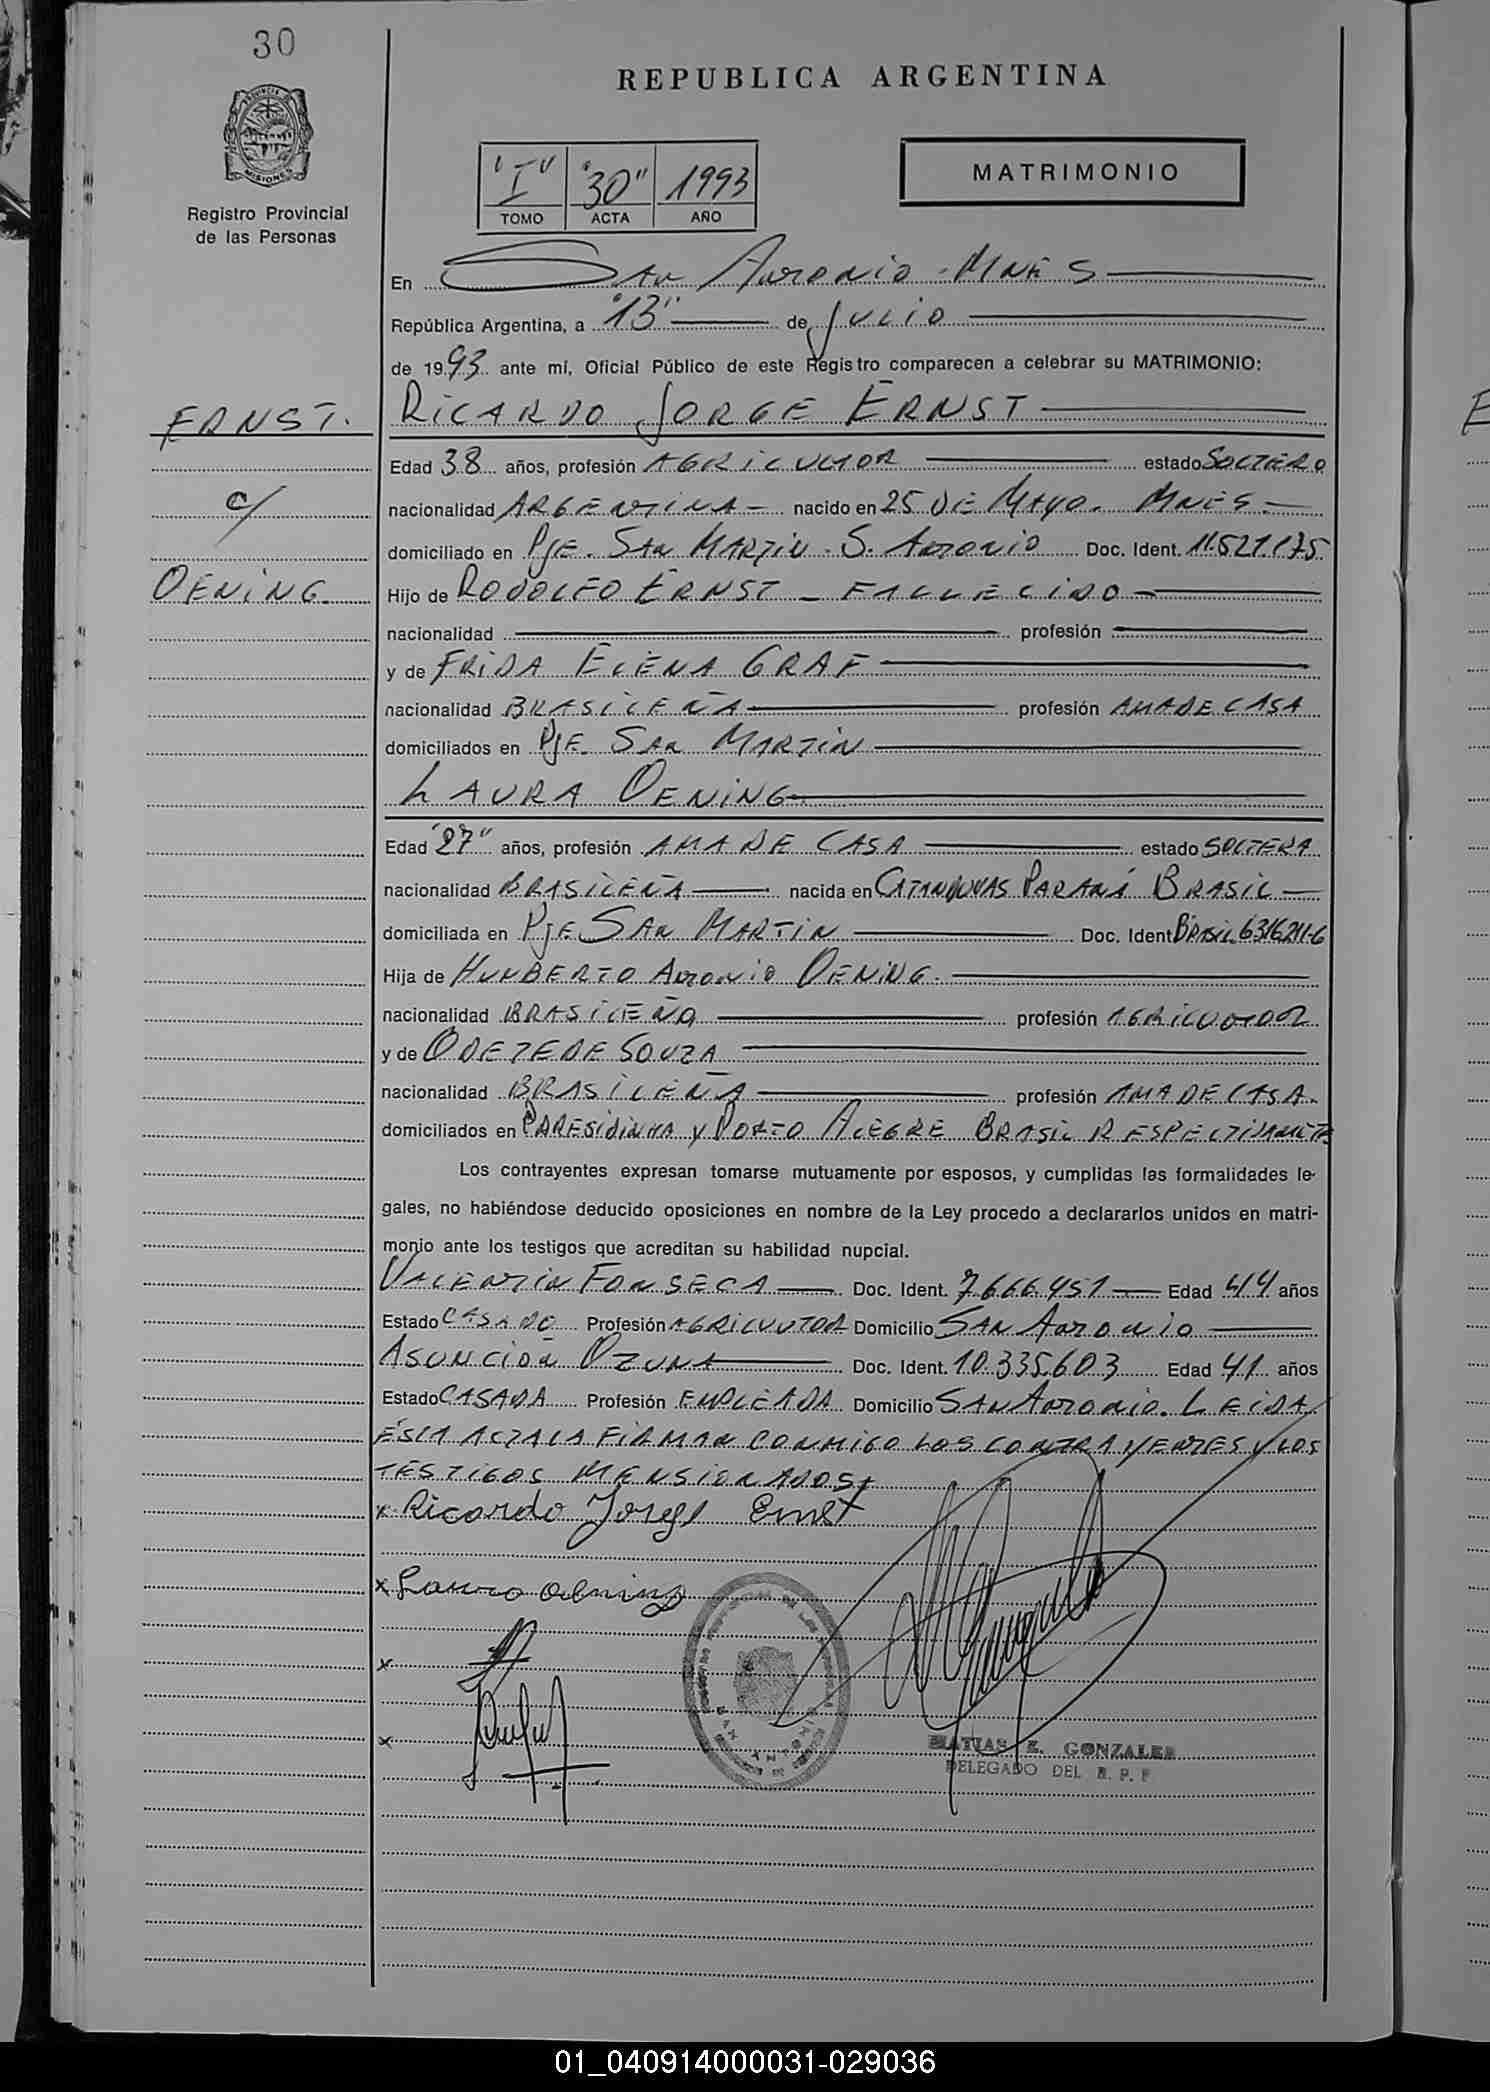 30
REPUBLICA ARGENTINA
PROVINCIA DE
MISIONES
Registro Provincial
de las Personas
"I" "30" 1993
TOMO ACTA AÑO
MATRIMONIO
En San Antonio - Mnes
República Argentina, a "13" de Julio
de 1993 ante mí, Oficial Público de este Registro comparecen a celebrar su MATRIMONIO:
ERNST.
c/
OENING
RICARDO JORGE ERNST
Edad 38 años, profesión AGRICULTOR estado SOLTERO
nacionalidad ARGENTINA - nacido en 25 DE MAYO. MNES -
domiciliado en PJE. SAN MARTIN. S. ANTONIO Doc. Ident. 11.521175
Hijo de RODOLFO ERNST - FALLECIDO -
nacionalidad profesión
y de FRIDA ELENA GRAF
nacionalidad BRASILEÑA profesión AMA DE CASA
domiciliados en PJE. SAN MARTIN
LAURA OENING
Edad "27" años, profesión AMA DE CASA estado SOLTERA
nacionalidad BRASILEÑA nacida en CATANDUVAS PARANÁ BRASIL
domiciliada en PJE SAN MARTIN Doc. Ident BRASIL 6316211-6
Hija de HUMBERTO ANTONIO OENING.
nacionalidad BRASILEÑO profesión AGRICULTOR
y de ODETE DE SOUZA
nacionalidad BRASILEÑA profesión AMA DE CASA.
domiciliados en PARESIDINHA y PORTO ALEGRE BRASIL RESPECTIVAMETE
Los contrayentes expresan tomarse mutuamente por esposos, y cumplidas las formalidades le-
gales, no habiéndose deducido oposiciones en nombre de la Ley procedo a declararlos unidos en matri-
monio ante los testigos que acreditan su habilidad nupcial.
VALENTIN FONSECA Doc. Ident. 7.666.451 Edad 44 años
Estado CASADO Profesión AGRICULTOR Domicilio SAN ANTONIO
ASUNCION OZUNA Doc. Ident. 10.335.603 Edad 41 años
Estado CASADA Profesión EMPLEADA Domicilio SAN ANTONIO. LEIDA
ESTA ACTA LA FIRMAN CONMIGO LOS CONTRAYENTES Y LOS
TESTIGOS MENSIONADOS
x Ricardo Jorge Ernst
x Laura Oening
x
x
MATIAS E. GONZALEZ
DELEGADO DEL R. P. P.
01_040914000031-029036